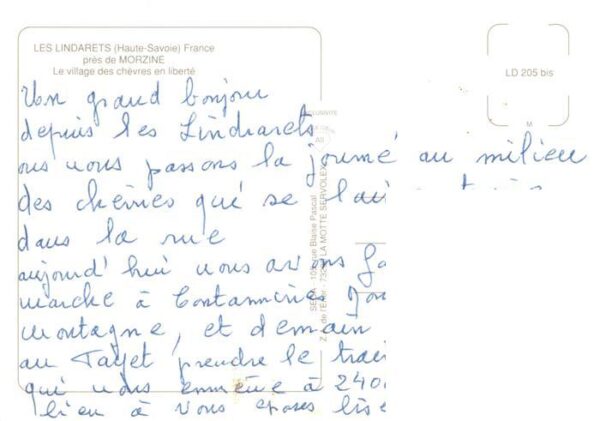 LES LINDARETS (Haute-Savoie) France
près de MORZINE
Le village des chèvres en liberté
LD 205 bis
M
Un grand bonjour
depuis les Lindarets
ous nous passons la journé au milieu
des chèvres qué se
dans la rue
aujourd'hui nous avons
marche à Contamines
montagne, et demain
au Fayet prendre le
qui nous emmène à 240
lieu à vous
SEPA - rue Blaise Pascal
Z de l'Erier - LA MOTTE SERVOLEX